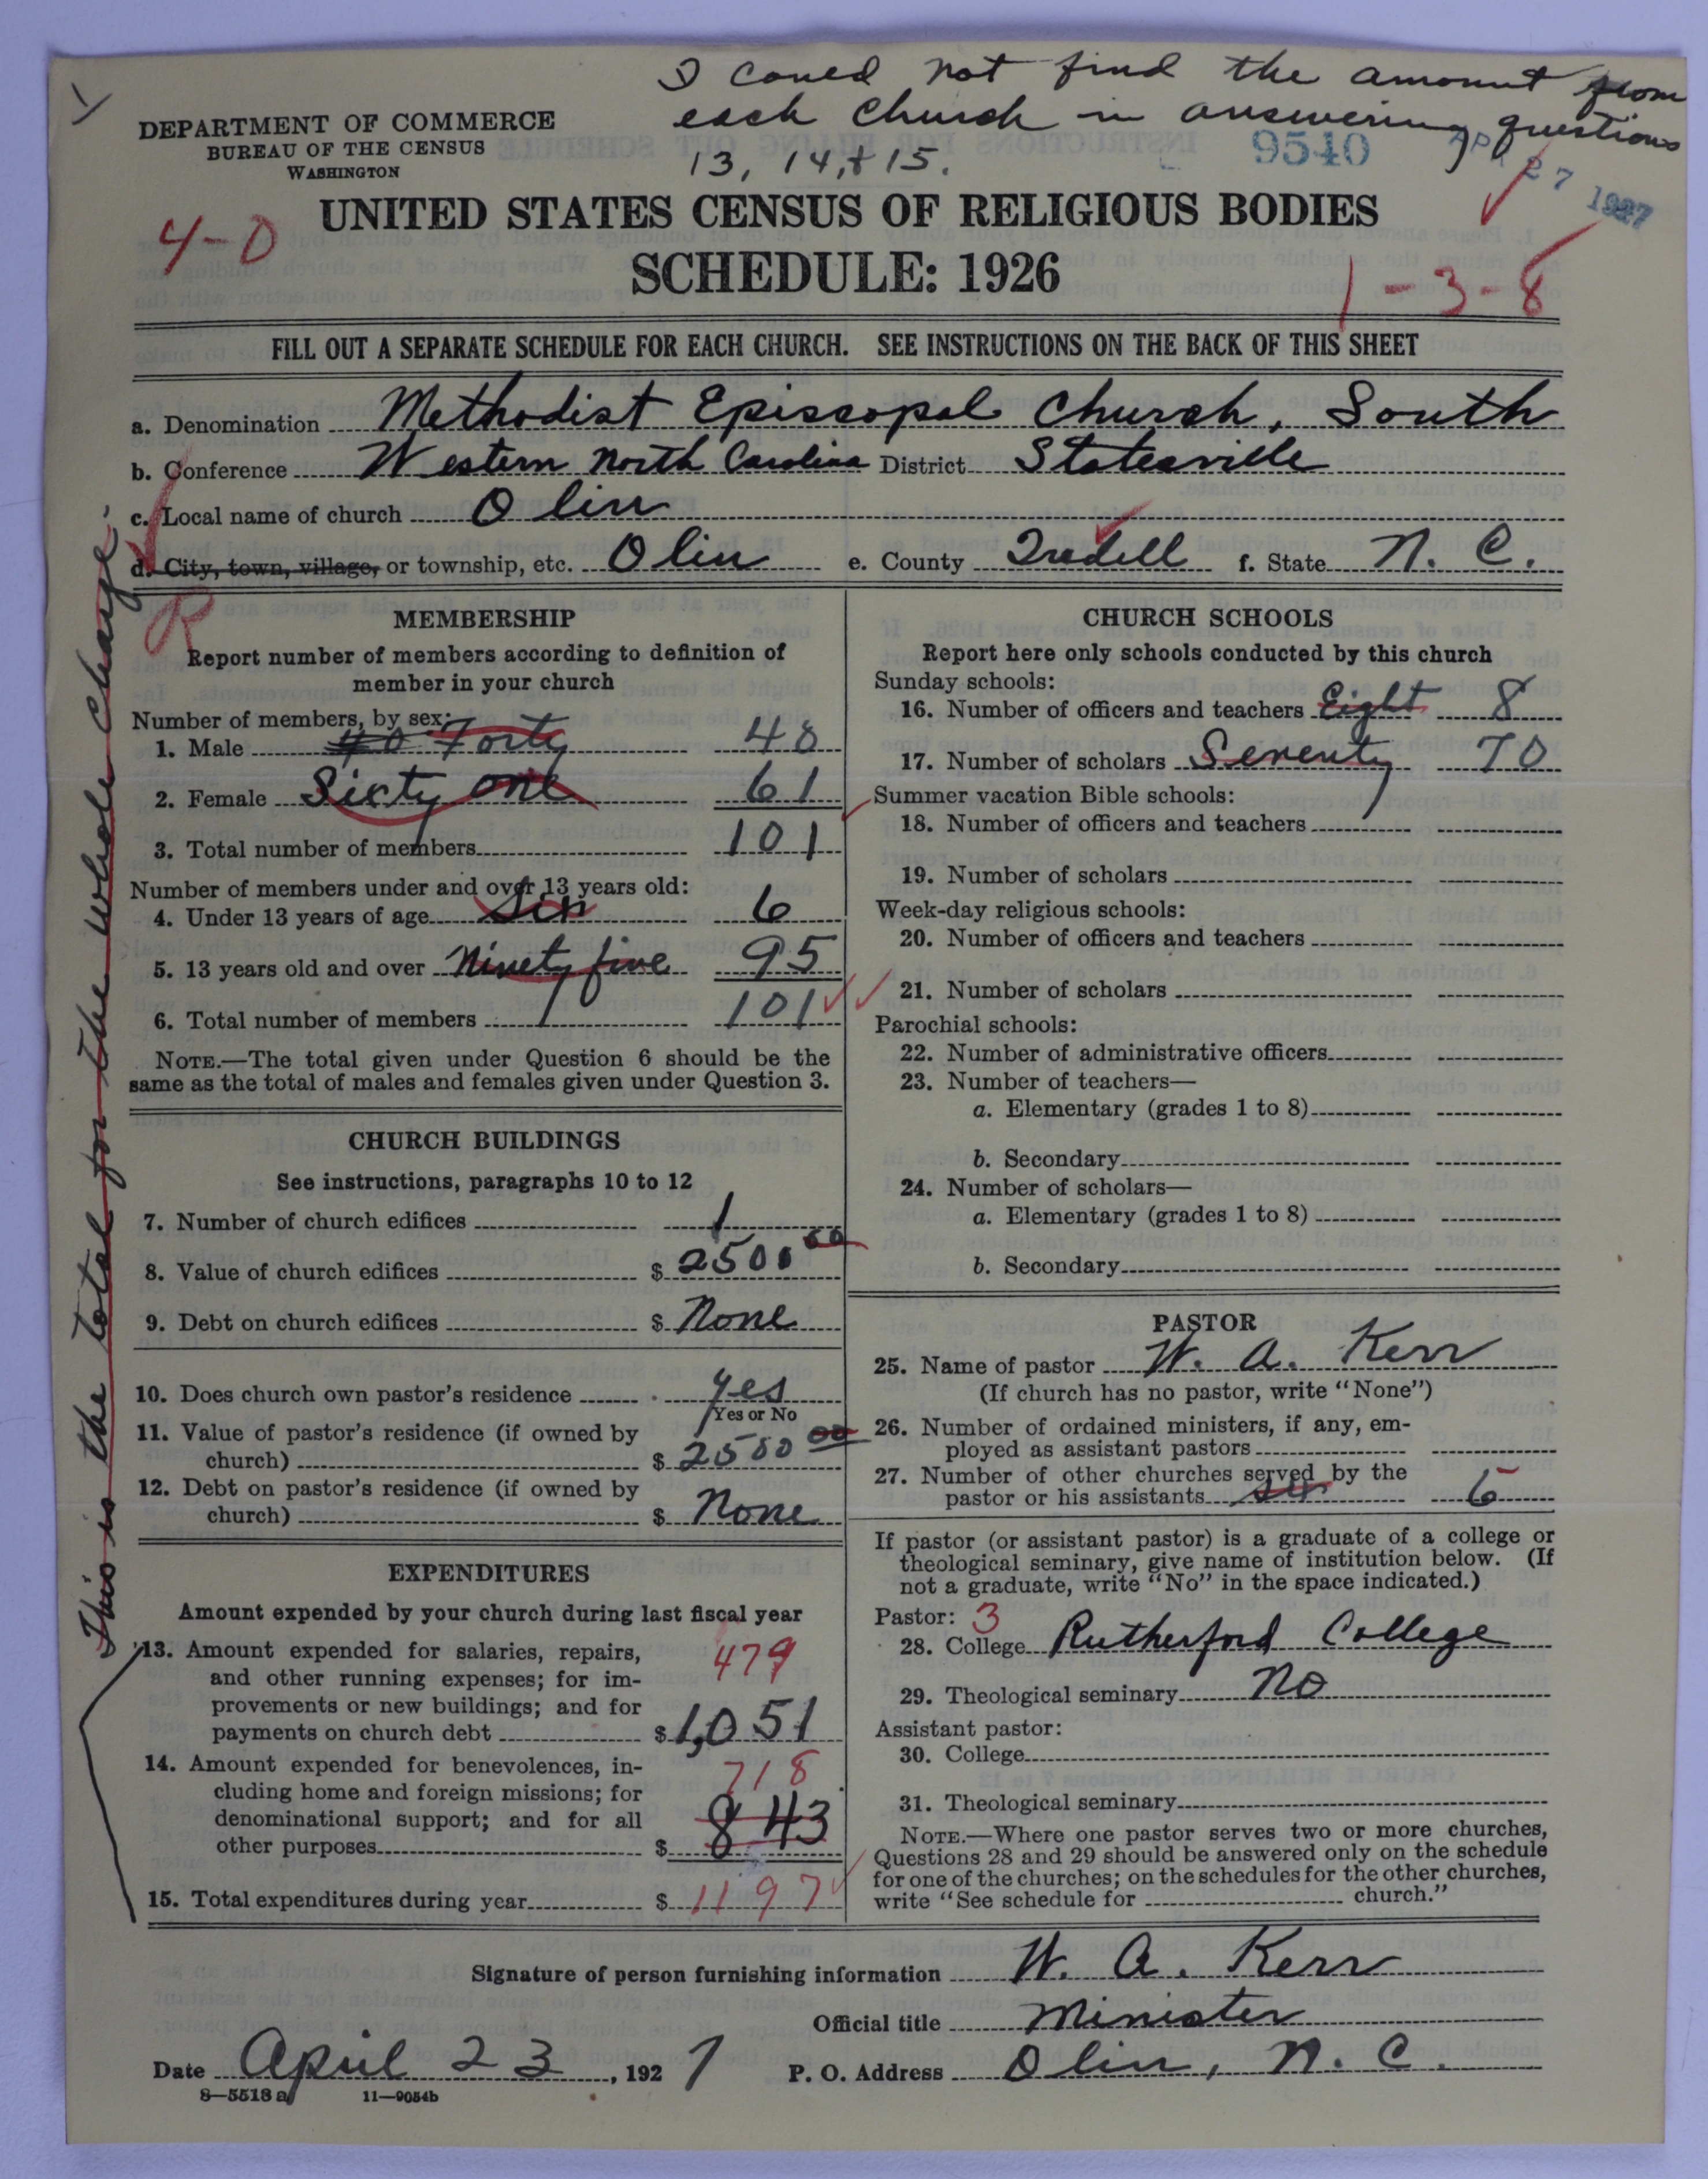 I coued not find the amount from
each church in answering questions
13, 14, & 15.
DEPARTMENT OF COMMERCE
BUREAU OF THE CENSUS
WASHINGTON
9540
APR 27 1927
4-0
UNITED STATES CENSUS OF RELIGIOUS BODIES
SCHEDULE: 1926
1-3-8
FILL OUT A SEPARATE SCHEDULE FOR EACH CHURCH. SEE INSTRUCTIONS ON THE BACK OF THIS SHEET
a. Denomination Methodist Episcopal Church, South
b. Conference Western North Carolina District Statesville
c. Local name of church Olin
d. City, town, village, or township, etc. Olin e. County Iredell f. State N. C.
R
This is the total for the whole charge.
MEMBERSHIP
Report number of members according to definition of
member in your church
Number of members, by sex:
1. Male 40 Forty 40
2. Female Sixty one 61
3. Total number of members 101
Number of members under and over 13 years old:
4. Under 13 years of age Six 6
5. 13 years old and over Ninety five 95
6. Total number of members 101
NOTE.—The total given under Question 6 should be the
same as the total of males and females given under Question 3.
CHURCH BUILDINGS
See instructions, paragraphs 10 to 12
7. Number of church edifices 1
8. Value of church edifices $ 2500 00
9. Debt on church edifices $ None
10. Does church own pastor's residence yes
Yes or No
11. Value of pastor's residence (if owned by
church) $ 2500 00
12. Debt on pastor's residence (if owned by
church) $ None
EXPENDITURES
Amount expended by your church during last fiscal year
13. Amount expended for salaries, repairs,
and other running expenses; for im-
provements or new buildings; and for
payments on church debt $ 1,051
479
14. Amount expended for benevolences, in-
cluding home and foreign missions; for
denominational support; and for all
other purposes $ 843
718
15. Total expenditures during year $ 1197
CHURCH SCHOOLS
Report here only schools conducted by this church
Sunday schools:
16. Number of officers and teachers Eight 8
17. Number of scholars Seventy 70
Summer vacation Bible schools:
18. Number of officers and teachers
19. Number of scholars
Week-day religious schools:
20. Number of officers and teachers
21. Number of scholars
Parochial schools:
22. Number of administrative officers
23. Number of teachers—
a. Elementary (grades 1 to 8)
b. Secondary
24. Number of scholars—
a. Elementary (grades 1 to 8)
b. Secondary
PASTOR
25. Name of pastor W. A. Kerr
(If church has no pastor, write "None")
26. Number of ordained ministers, if any, em-
ployed as assistant pastors
27. Number of other churches served by the
pastor or his assistants six 6
If pastor (or assistant pastor) is a graduate of a college or
theological seminary, give name of institution below. (If
not a graduate, write "No" in the space indicated.)
Pastor: 3
28. College Rutherford College
29. Theological seminary No
Assistant pastor:
30. College
31. Theological seminary
NOTE.—Where one pastor serves two or more churches,
Questions 28 and 29 should be answered only on the schedule
for one of the churches; on the schedules for the other churches,
write "See schedule for church."
Signature of person furnishing information W. A. Kerr
Official title Minister
Date April 23, 1927 P. O. Address Olin, N. C.
8—5518 a 11—9054b